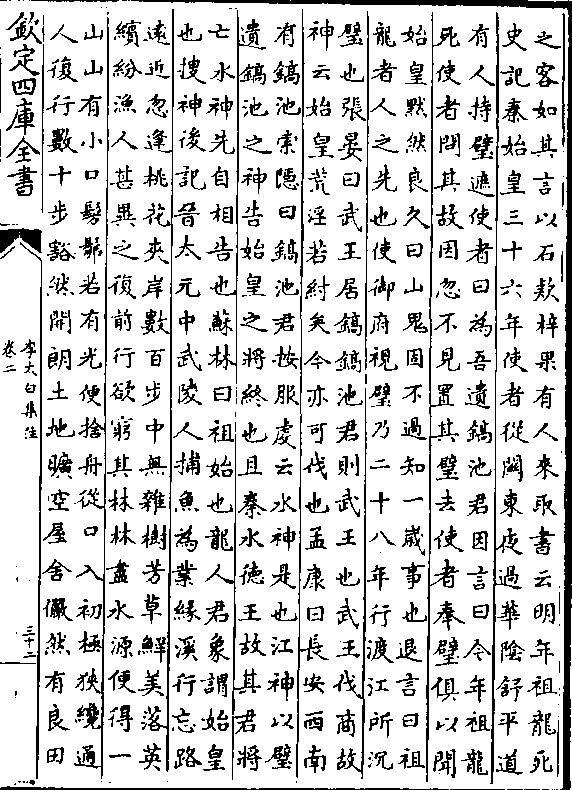 之客如其言以石欵梓果有人來取書云明年祖龍死
史記秦始皇三十六年使者從闗東夜過華陰舒平道
有人持璧遮使者曰為吾遺鎬池君因言曰今年祖龍
死使者問其故因忽不見置其璧去使者奉璧俱以聞
始皇黙然良久曰山鬼固不過知一嵗事也退言曰祖
龍者人之先也使御府視璧乃二十八年行渡江所沉
璧也張晏曰武王居鎬鎬池君則武王也武王伐商故
神云始皇荒淫若紂矣今亦可伐也孟康曰長安西南
有鎬池索隠曰鎬池君按服虔云水神是也江神以璧
遺鎬池之神告始皇之將終也且秦水徳王故其君將
亡水神先自相告也蘇林曰祖始也龍人君象謂始皇
也搜神後記晉太元中武陵人捕魚為業緣溪行忘路
逺近忽逢桃花夾岸數百步中無雜樹芳草鮮美落英
繽紛漁人甚異之復前行欲窮其林林盡水源便得一
山山有小口髣髴若有光便捨舟從口入初極狹纔通
人復行數十步豁然開朗土地曠空屋舍儼然有良田
欽定四庫全書
李太白集注
卷二
三十二